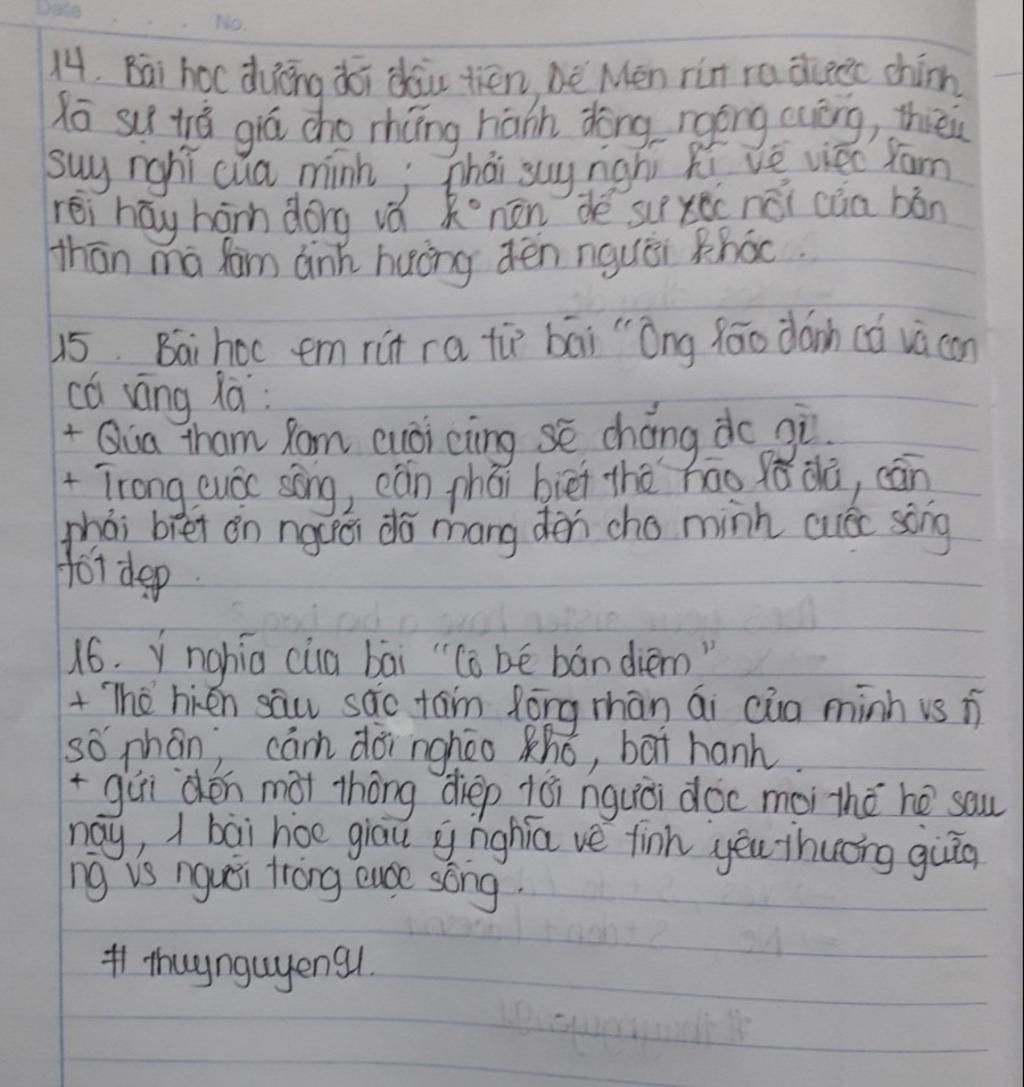 Date No.
14. Bài học đường đời đầu tiên, Dế Mèn rút ra được chính
là sự trả giá cho những hành động ngông cuồng, thiếu
suy nghĩ của mình ; phải suy nghĩ kĩ về việc làm
rồi hãy hành động và k° nên để sự xốc nổi của bản
thân mà làm ảnh hưởng đến người khác.
15. Bài học em rút ra từ bài "Ông lão đánh cá và con
cá vàng là :
+ Qúa tham lam cuối cùng sẽ chẳng đc gì.
+ Trong cuộc sống, cần phải biết thế nào là đủ, cần
phải biết ơn người đã mang đến cho mình cuộc sống
tốt đẹp.
16. Ý nghĩa của bài "Cô bé bán diêm"
+ Thể hiện sâu sắc tấm lòng nhân ái của mình vs n~
số phận, cảnh đời nghèo khổ, bất hạnh.
+ gửi đến một thông điệp tới người đọc mọi thế hệ sau
này, 1 bài học giàu ý nghĩa về tình yêu thương giữa
ng vs người trong cuộc sống.
# thuynguyen91.